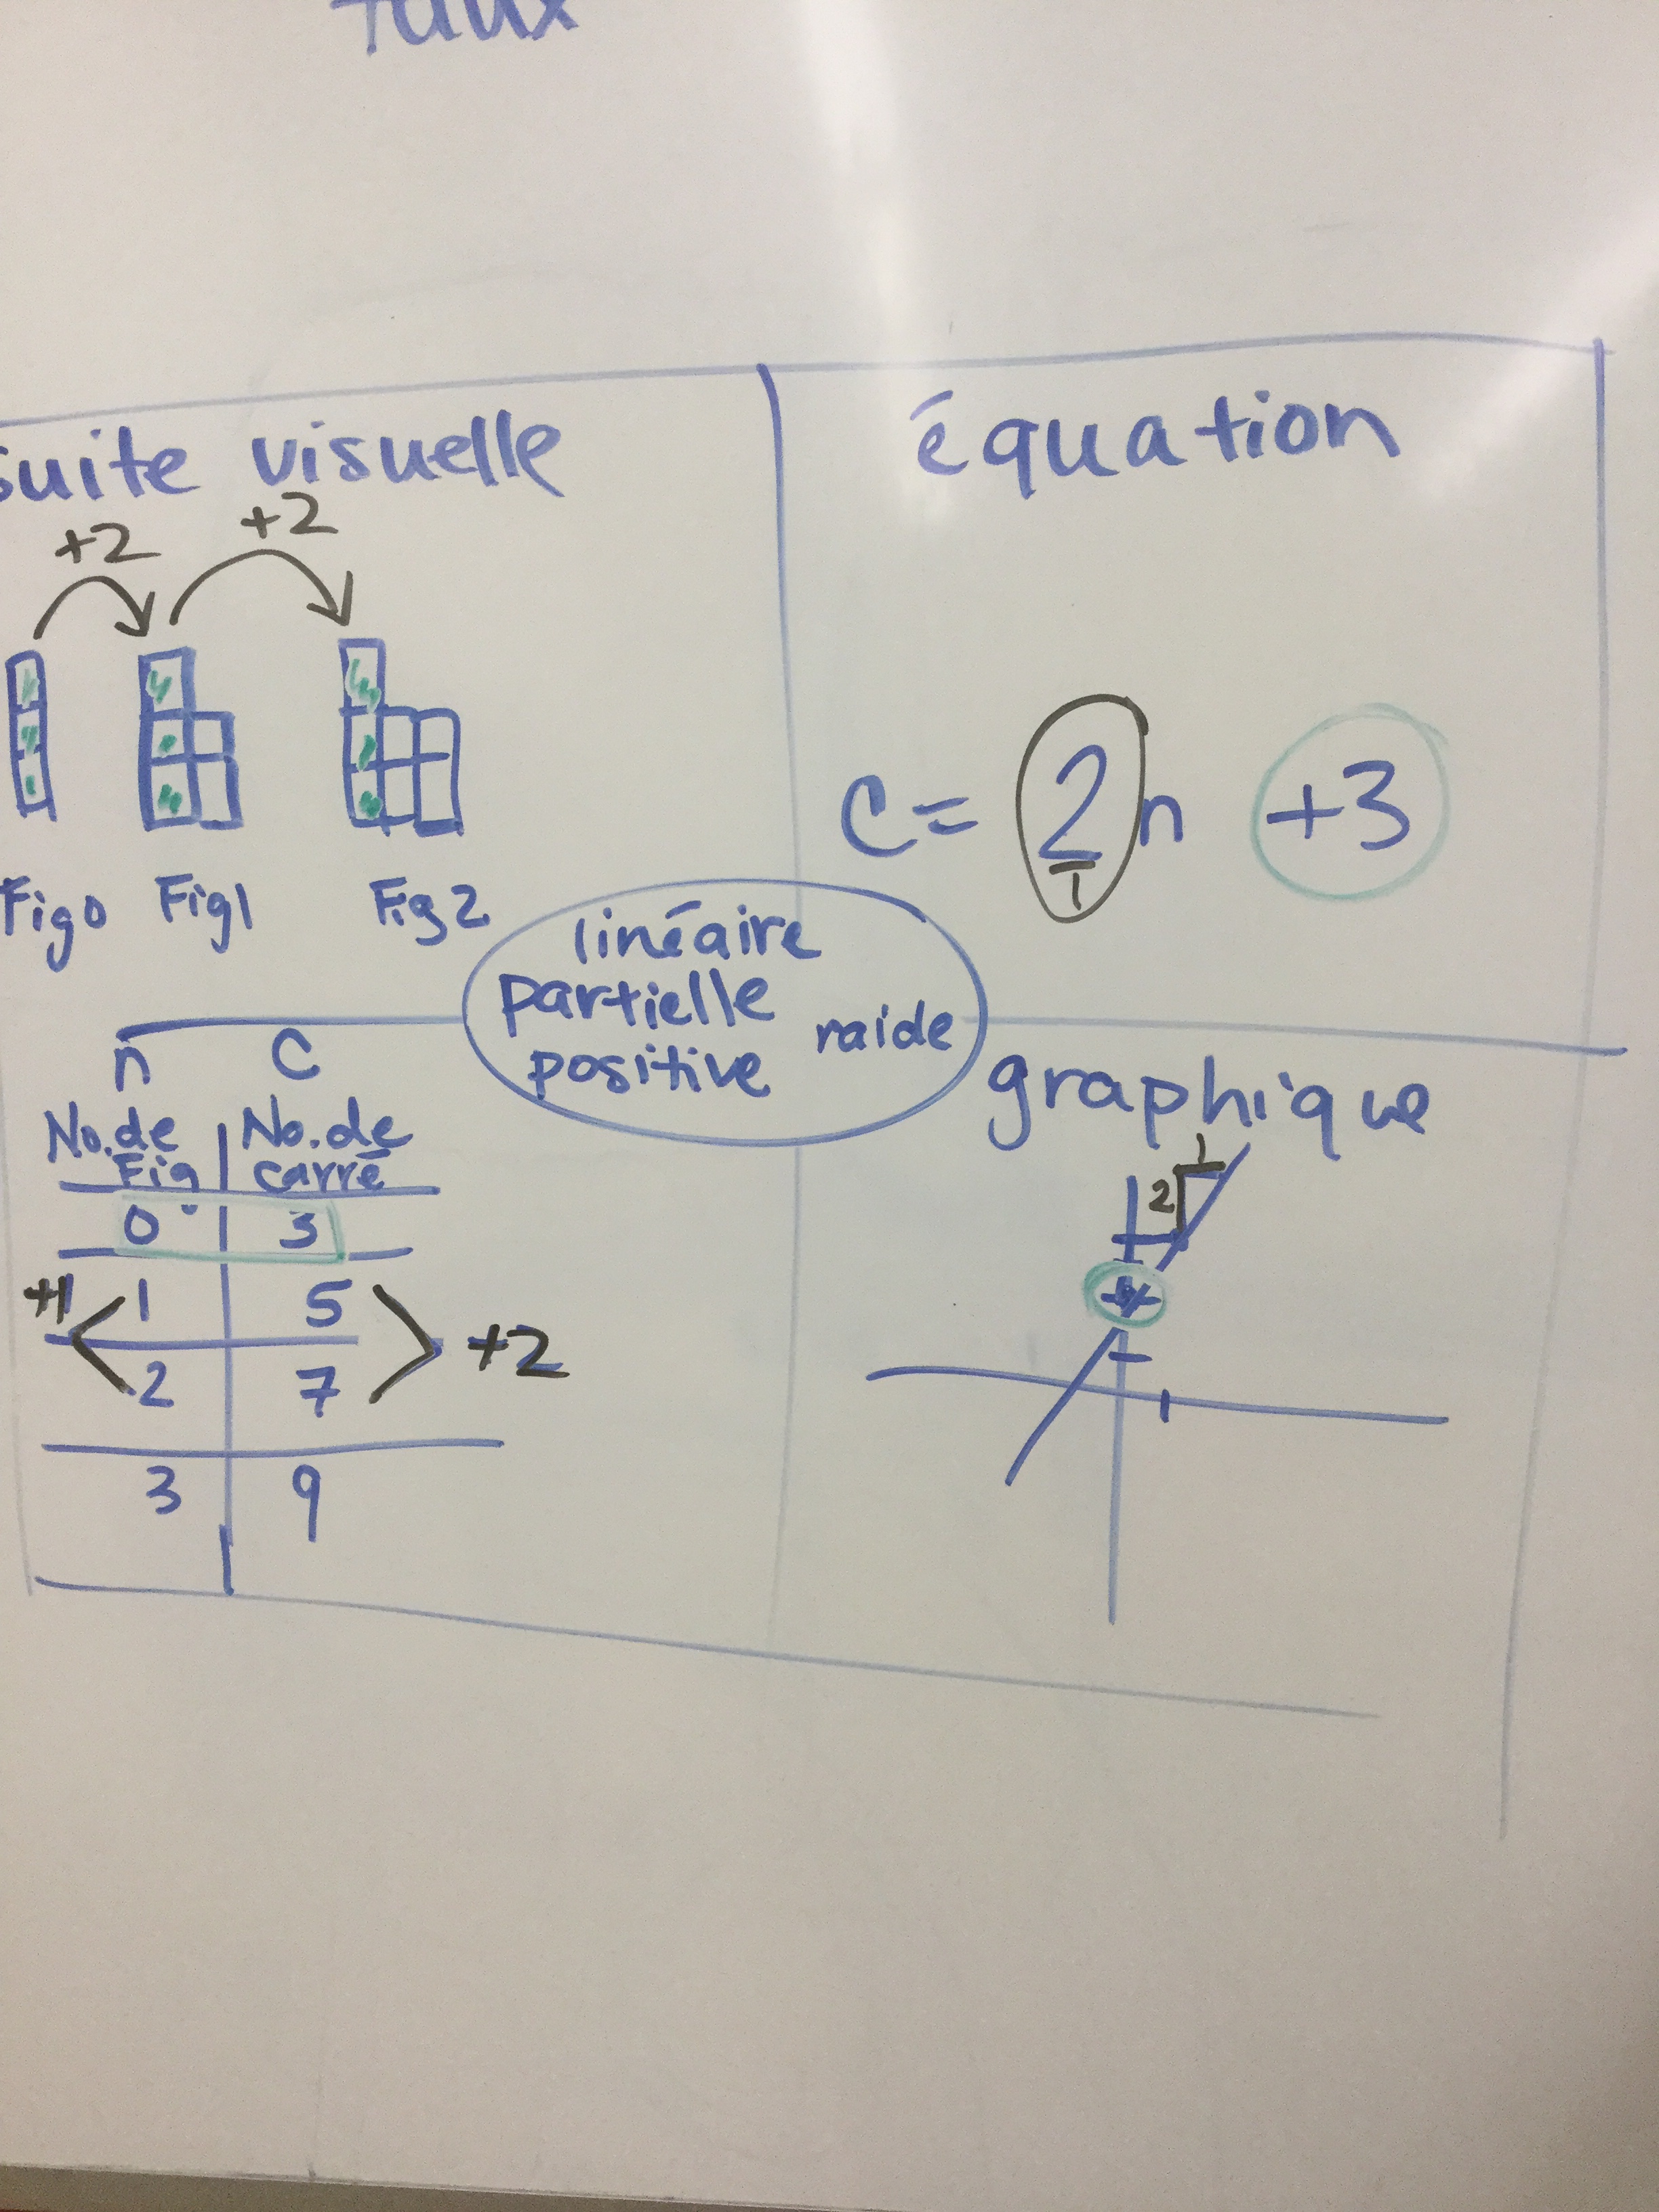 taux
suite visuelle
+2 +2
Fig0 Fig1 Fig2
équation
C = 2/1 n +3
linéaire
partielle
positive raide
n C
No. de Fig No. de carré
0 3
1 5
2 7
3 9
+1 +2
graphique
1
2
1